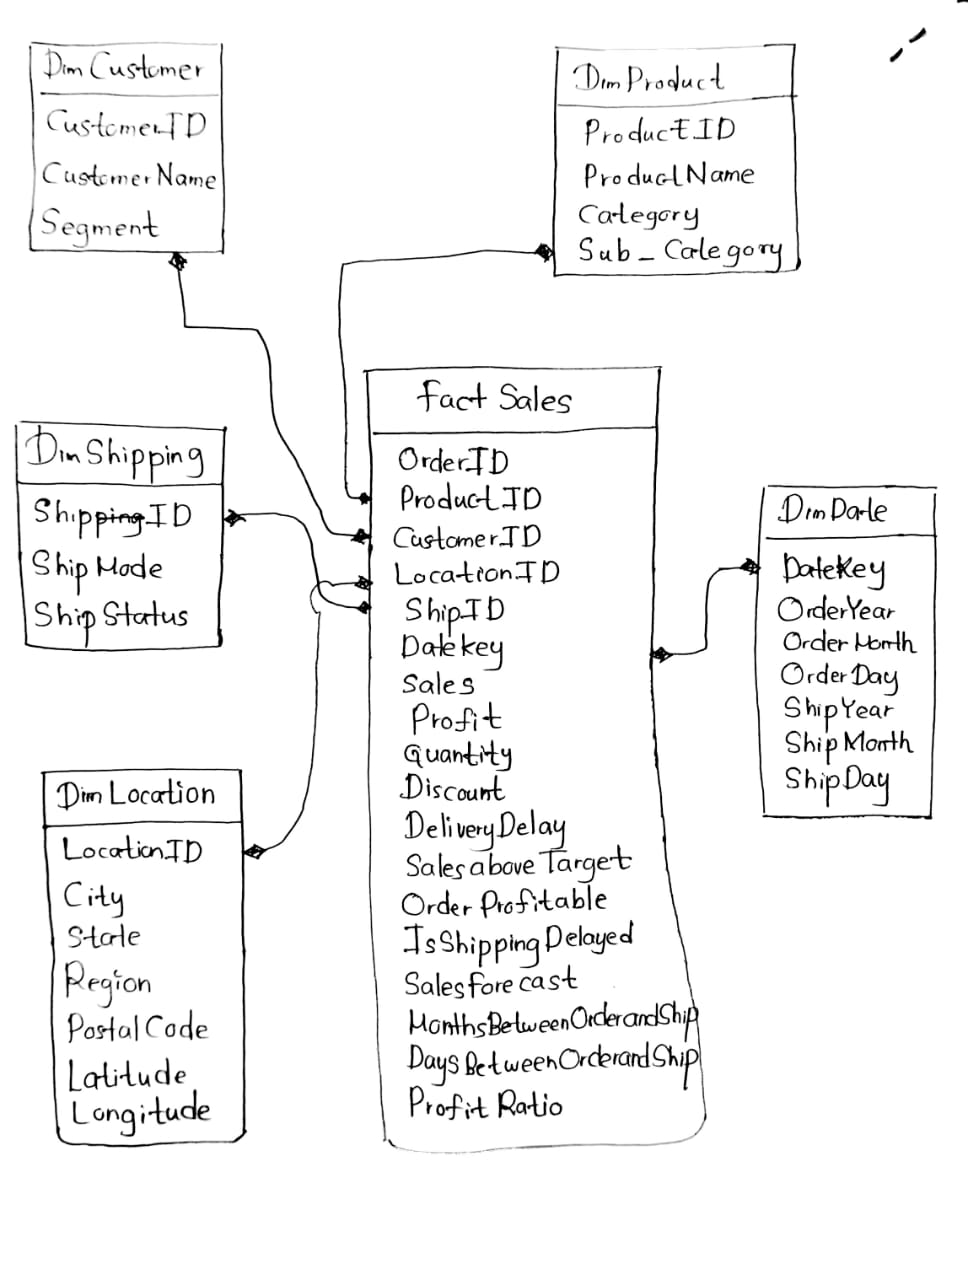 Dim Customer
CustomerID
CustomerName
Segment
Dim Product
ProductID
ProductName
Category
Sub_Category
Fact Sales
OrderID
ProductID
CustomerID
LocationID
ShipID
Datekey
Sales
Profit
Quantity
Discount
DeliveryDelay
Sales above Target
Order Profitable
IsShippingDelayed
Sales forecast
MonthsBetweenOrderandShip
DaysBetweenOrderandShip
Profit Ratio
Dim Shipping
ShippingID
Ship Mode
Ship Status
Dim Date
DateKey
OrderYear
Order Month
Order Day
ShipYear
Ship Month
ShipDay
Dim Location
LocationID
City
State
Region
Postal Code
Latitude
Longitude